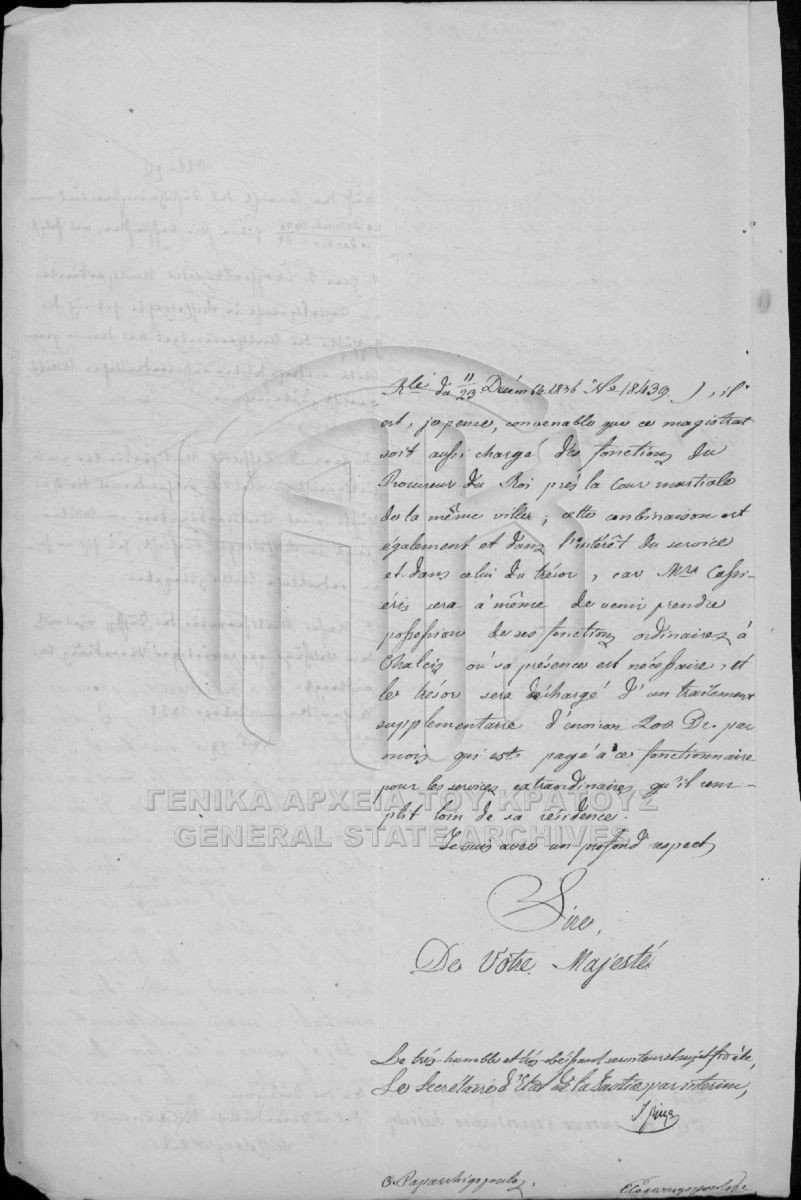 Rle du 11/23 Décembre 1836 No 18439), il
est, je pense, convenable que ce magistrat
soit aussi chargé des fonctions du
Procureur du Roi près la Cour martiale
de la même ville; cette combinaison est
également et dans l'intérêt du service
et dans celui du trésor, car Mr. Cassi-
éris sera à même de venir prendre
possession de ses fonctions ordinaires à
Chalcis où sa présence est nécessaire, et
le trésor sera déchargé d'un traitement
supplémentaire d'environ 200 Dr. par
mois qui est payé à ce fonctionnaire
pour les services extraordinaires qu'il rem-
plit loin de sa résidence.
ΓΕΝΙΚΑ ΑΡΧΕΙΑ ΤΟΥ ΚΡΑΤΟΥΣ
GENERAL STATE ARCHIVES
Je suis avec un profond respect
Sire,
De Votre Majesté
Le très humble et très obéissant serviteur et sujet fidèle,
Le Secrétaire d'Etat de la Justice par interim,